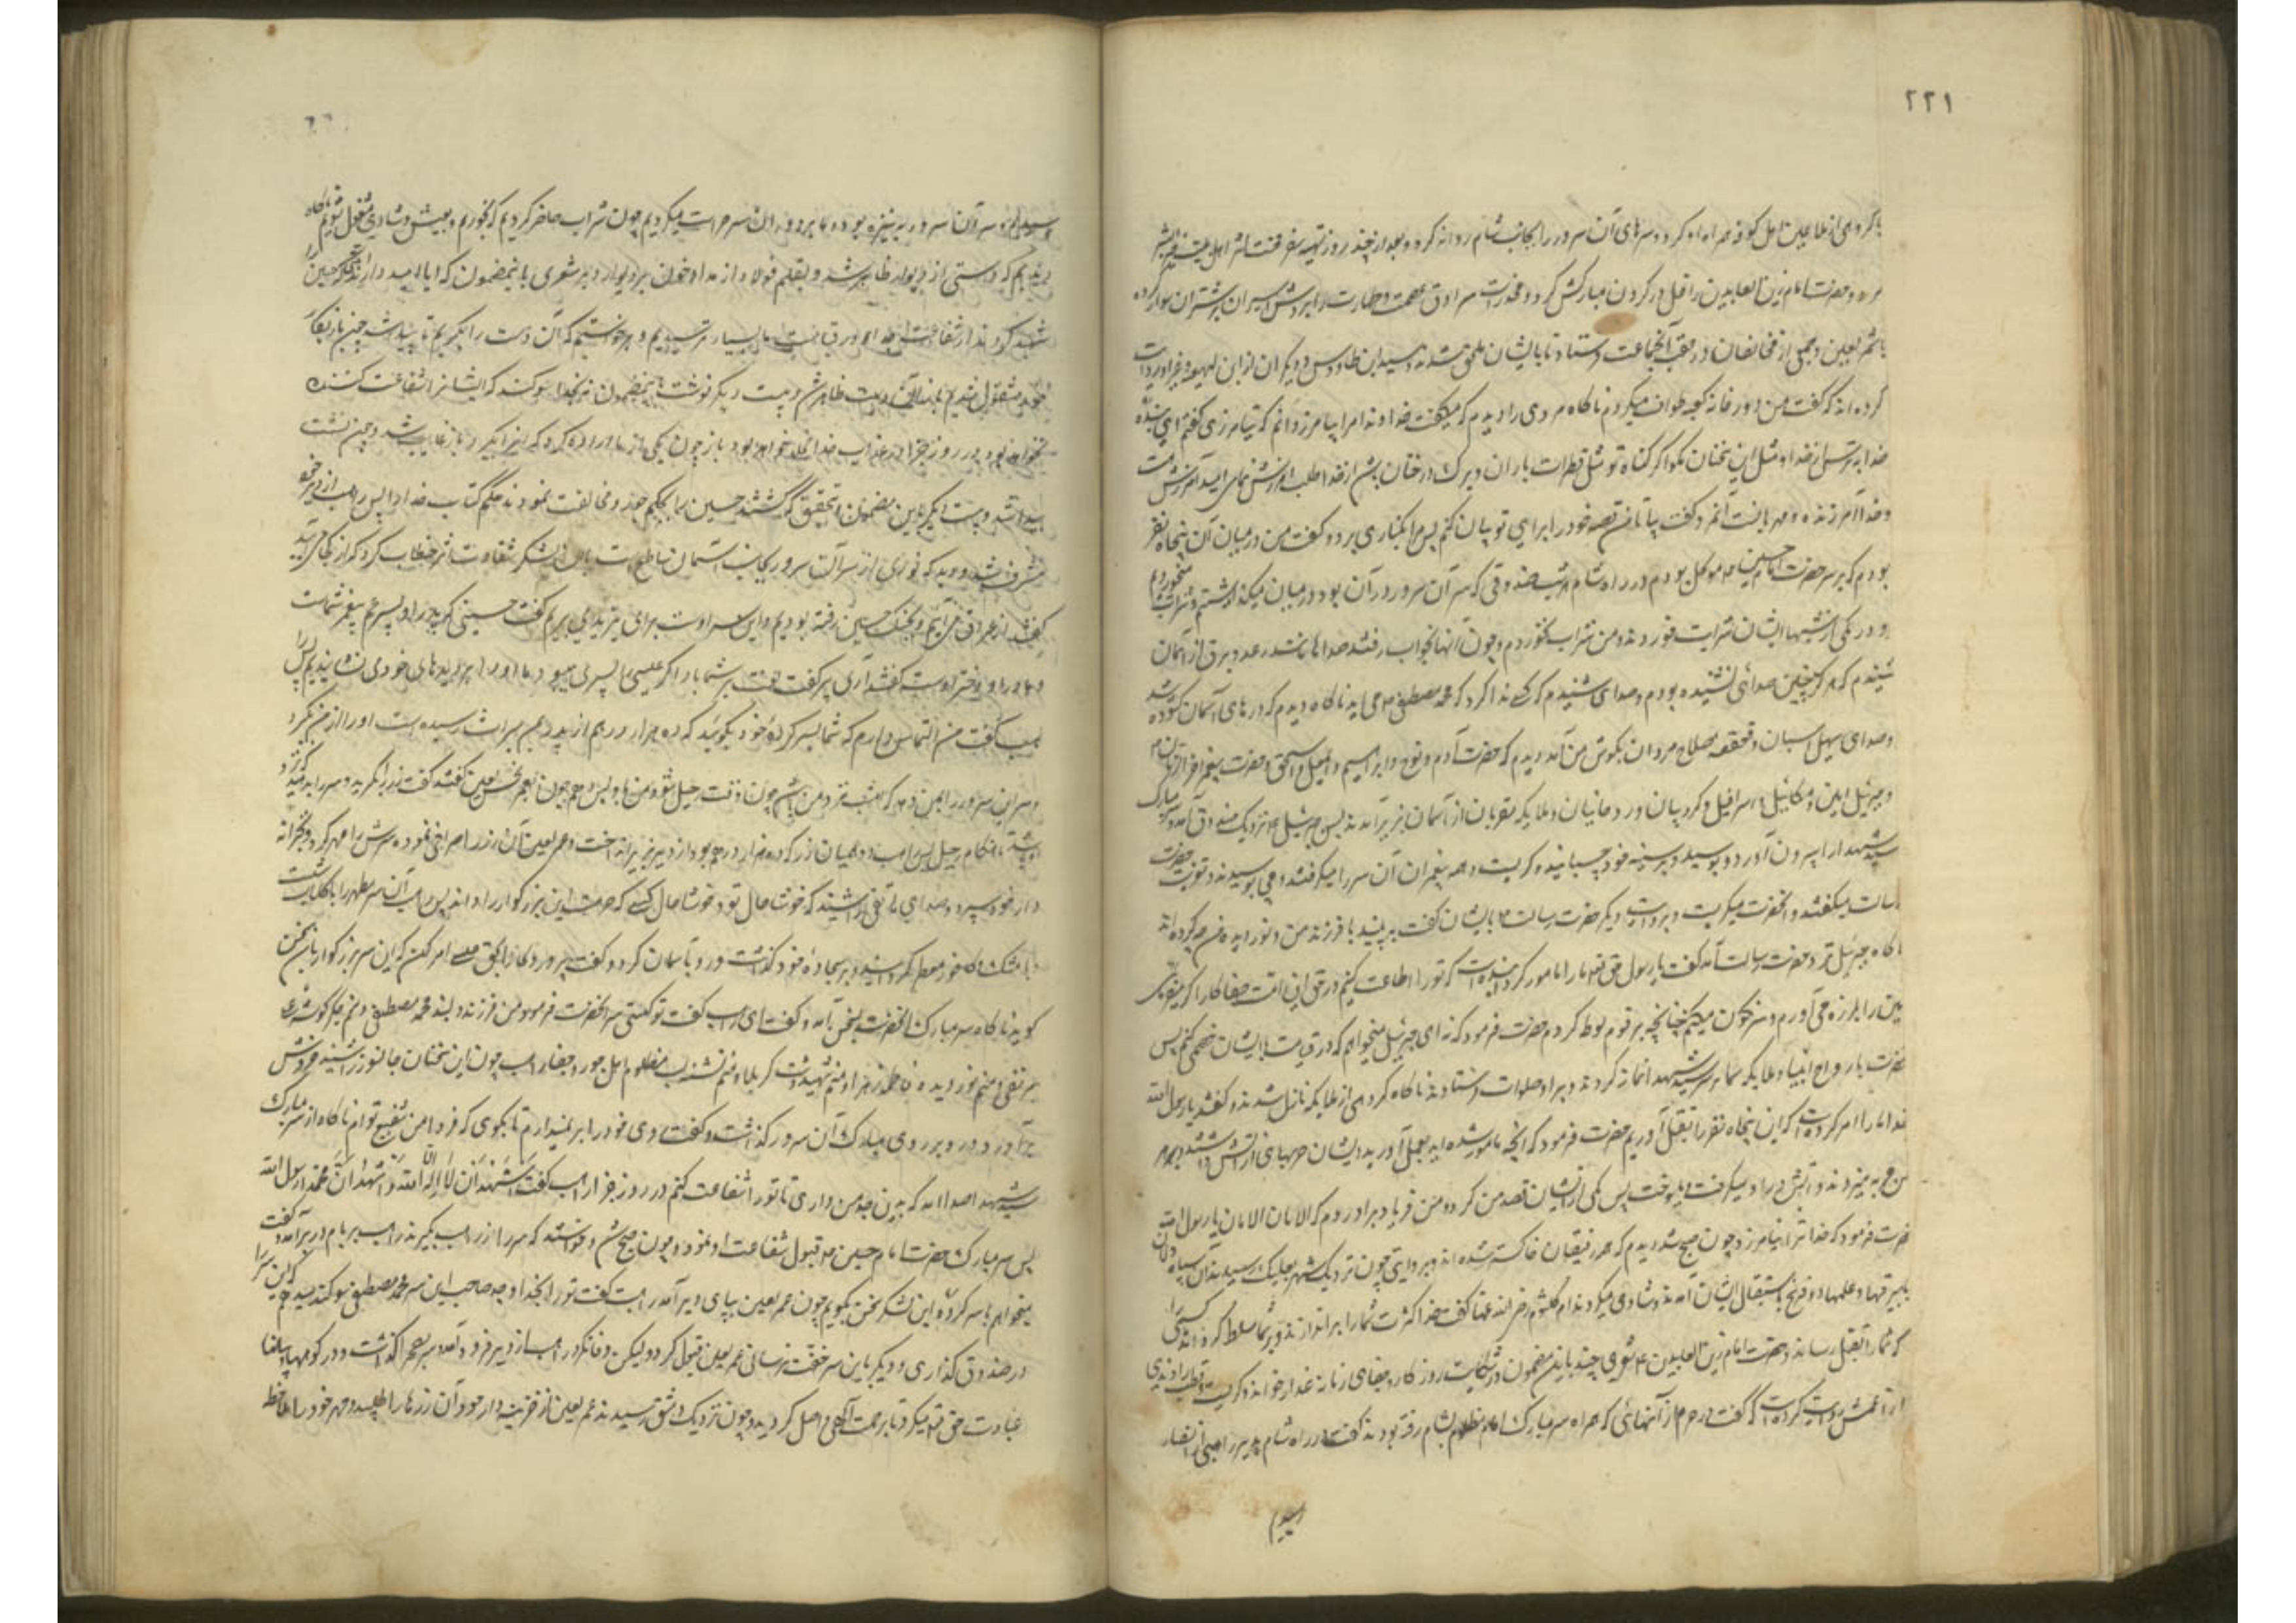 ۲۲۱
با گروهی از ملاعین اهل کوفه همراه او کرد و سرهای آن سرور را بجانب شام روانه کرد و بعد از چند روز تهیه سفر
و حضرت امام زین العابدین را غل در گردن مبارکش کرد و مخدرات سرادق عصمت و طهارت را بروش اسیران بر شتران سوار کرده
با شمر لعین و جمعی از مخالفان در عقب آنجماعت فرستاد تا بایشان ملحق شدند و سید ابن طاوس و دیگران از ابن لهیعه و غیر او روایت
کرده اند که گفت من دور خانه کعبه طواف میکردم ناگاه مردی را دیدم که میگفت خداوندا مرا بیامرز و دانم که نیامرزی گفتم ای بنده
خدا بترس از خدا و مثل این سخنان مگو اگر گناه تو مثل قطرات باران و برک درختان باشد از خدا طلب آمرزش نمای امید آمرزش هست
و خدا آمرزنده و مهربانست آنمرد گفت بیا تا من قصه خود را برای تو بیان کنم پس مرا بکناری برد و گفت من در میان آن پنجاه نفر
بودم که بر سر حضرت امام حسین موکل بودم در راه شام هر شب صندوقی که سر آن سرور در آن بود در میان میگذاشتیم و شراب میخوردیم
و در یکی از شبها ایشان شراب خوردند و من شراب نخوردم و چون آنها بخواب رفتند صداهای تند رعد و برق از آسمان
شنیدم که هرگز چنین صدائی نشنیده بودم و صدای شنیدم که کسی ندا کرد که محمد مصطفی می آید ناگاه دیدم که درهای آسمان گشوده شد
و صدای صهیل اسبان و قعقعه سلاح مردان بگوش من آمد و دیدم که حضرت آدم و نوح و ابراهیم و اسمعیل و اسحق و حضرت پیغمبر آخر الزمان
و جبرئیل امین و میکائیل و اسرافیل و کروبیان و روحانیان و ملایکه مقربان از آسمان بزیر آمدند پس جبرئیل نزدیک صندوق آمد و سر مبارک
سید شهدا را بیرون آورد و بوسید و بر سینه خود چسبانید و گریست و همه پیغمبران آن سر را میگرفتند و می بوسیدند و تعزیت حضرت
رسالت میگفتند و آنحضرت میگریست و بروایت دیگر حضرت رسالت بایشان گفت ببینید با فرزند من و نور دیده من چه کرده اند
ناگاه جبرئیل نزد حضرت رسالت آمد گفت یا رسول حق تعالی مرا مامور کردانیده است که تو را اطاعت کنم در حق این امت جفاکار اگر میفرمائی
زمین را بلرزه می آورم و سرنگون میکنم چنانچه بر قوم لوط کردم حضرت فرمود که نه ای جبرئیل میخواهم که در قیامت با ایشان خصمی کنم پس
حضرت با ارواح انبیا و ملایکه سما بر سر سید شهدا نماز کردند و بر او صلوات فرستادند ناگاه گروهی از ملایکه نازل شدند و گفتند یا رسول الله
خدا ما را امر کرده است که این پنجاه نفر را بقتل آوریم حضرت فرمود که آنچه مامور شده اید بعمل آورید و ایشان حربهای از آتش داشتند
حربه میزدند و آتش در او میگرفت و میسوخت پس یکی از ایشان قصد من کرد و من فریاد برآوردم که الامان الامان یا رسول الله
حضرت فرمود که خدا ترا نیامرزد چون صبح شد دیدم که همه رفیقان خاکستر شده اند و بروایتی چون نزدیک شهر بعلبک رسیدند آن سیاه دلان
با بیرقها و علمها و دف و نی باستقبال ایشان آمدند و شادی میکردند ام کلثوم رضی الله عنها گفت خدا کثرت شما را براندازد و بر شما مسلط گرداند کسی را
که شما را بقتل رساند و حضرت امام زین العابدین شعری چند باین مضمون در شکایت روزگار و جفای زمانه غدار خواند و گریست و قطب راوندی
از اعمش روایت کرده است که گفت در حرم از آنهائی که همراه سر مبارک امام مظلوم بشام رفته بودند گفت در راه شام بدیر راهبی از نصار
رسیدیم
رسیدیم و سر آن سرور بر نیزه بود و ما بر دور آن سر حراست میکردیم چون شراب حاضر کردیم که بخوریم و بعیش و شادی مشغول شویم ناگاه
دیدیم که دستی از دیوار ظاهر شد و بقلم فولاد از مداد خون بر دیوار دیر شعری باینمضمون که ایا امید دارند گروهی که حسین را
شهید کردند از شفاعت جد او در قیامت ما بسیار ترسیدیم و برخواستیم که آن دست را بگیریم ناپیدا شد چون باز بکار
خود مشغول شدیم باز آن دست ظاهر شد و بیت دیگر نوشت باینمضمون نه بخدا سوگند که ایشانرا شفاعت کننده
نخواهد بود و در روز جزا در عذاب خدا مخلد خواهد بود باز چون یکی از ما اراده کرد که آنرا بگیرد باز غایب شد و چون نشست
پیدا شد و بیت دیگر باین مضمون که بتحقیق که کشتند حسین را بحکم جور و مخالفت نمودند حکم کتاب خدا را پس راهب از دیر خود
مشرف شد و دید که نوری از سر آن سرور بجانب آسمان ساطع است با آن لشکر شقاوت اثر خطاب کرد که از کجا می آئید
گفتند از عراق می آئیم و بجنگ حسین رفته بودیم و این سر اوست برای یزید می بریم گفت حسینی که پدر او پسر عم پیغمبر شماست
و مادر او دختر اوست گفتند آری پیر گفت لعنت بر شما باد اگر عیسی را پسری میبود ما او را بر دیدهای خود می نشاندیم پس
راهب گفت من التماس دارم که شما بسر کرده خود بگوئید که ده هزار درهم از پدر بمن میراث رسیده است او را از من بگیرد
و سر این سرور را بمن دهد که امشب نزد من باشد چون وقت رحیل شود من باو پس دهم چون بعمر نحس لعین گفتند گفت زر را بگیرید و سر را بدهید
هنگام رحیل پس راهب دو همیان زر که ده هزار درهم بود از دیر بزیر انداخت و عمر لعین آن زر را صرافی نموده سرش را مهر کرد و بخزانه
دار خود سپرد و صدای هاتفی را شنید که خوشا حال تو و خوشا حال کسی که حرمت این بزرگوار را داند پس راهب آن سر مطهر را با گلاب شست
با مشک و کافور معطر گردانید و بر سجاده خود گذاشت و رو بآسمان کرد و گفت پروردگارا بحق عیسی امر کن که این سر بزرگوار با من سخن
گوید ناگاه سر مبارک آنحضرت بسخن آمد و گفت ای راهب گفت تو کیستی سر آنحضرت فرمود من فرزند دلبند محمد مصطفی و منم جگر گوشه
علی مرتضی و منم نور دیده فاطمه زهرا و منم شهید دشت کربلا و منم تشنه لب مظلوم اهل جور و جفا راهب چون این سخنان جانسوز را شنید خروش
برآورد و رو بر روی مبارک آن سرور گذاشت و گفت روی خود را بر نمیدارم تا بگوی که فردا من شفیع توام ناگاه از سر مبارک
سید شهدا صدا آمد که بدین جد من درآی تا تو را شفاعت کنم در روز جزا راهب گفت اَشهَدُ اَن لا اِلٰهَ اِلّا اللّه وَ اَشهَدُ اَنَّ مُحَمَّداً رسول الله
پس سر مبارک حضرت امام حسین قبول شفاعت او نمود و چون صبح شد و خواستند که سر را از راهب بگیرند راهب بر بام دیر برآمد و گفت
میخواهم با سر کرده این لشکر سخن بگویم چون عمر لعین بپای دیر آمد راهب گفت تو را بخدا و جد صاحب این سر محمد مصطفی سوگند میدهم که این سر را
در صندوق گذاری و دیگر باین سر خفت نرسانی عمر لعین قبول کرد و لیکن وفا نکرد راهب از دیر فرود آمد و سر بصحرا گذاشت و در کوهها و بیابانها
عبادت حق تعالی میکرد تا برحمت الهی واصل گردید و چون نزدیک دمشق رسیدند عمر لعین از خزینه دار خود آن زرها را طلبید و مهر خود را ملاحظه